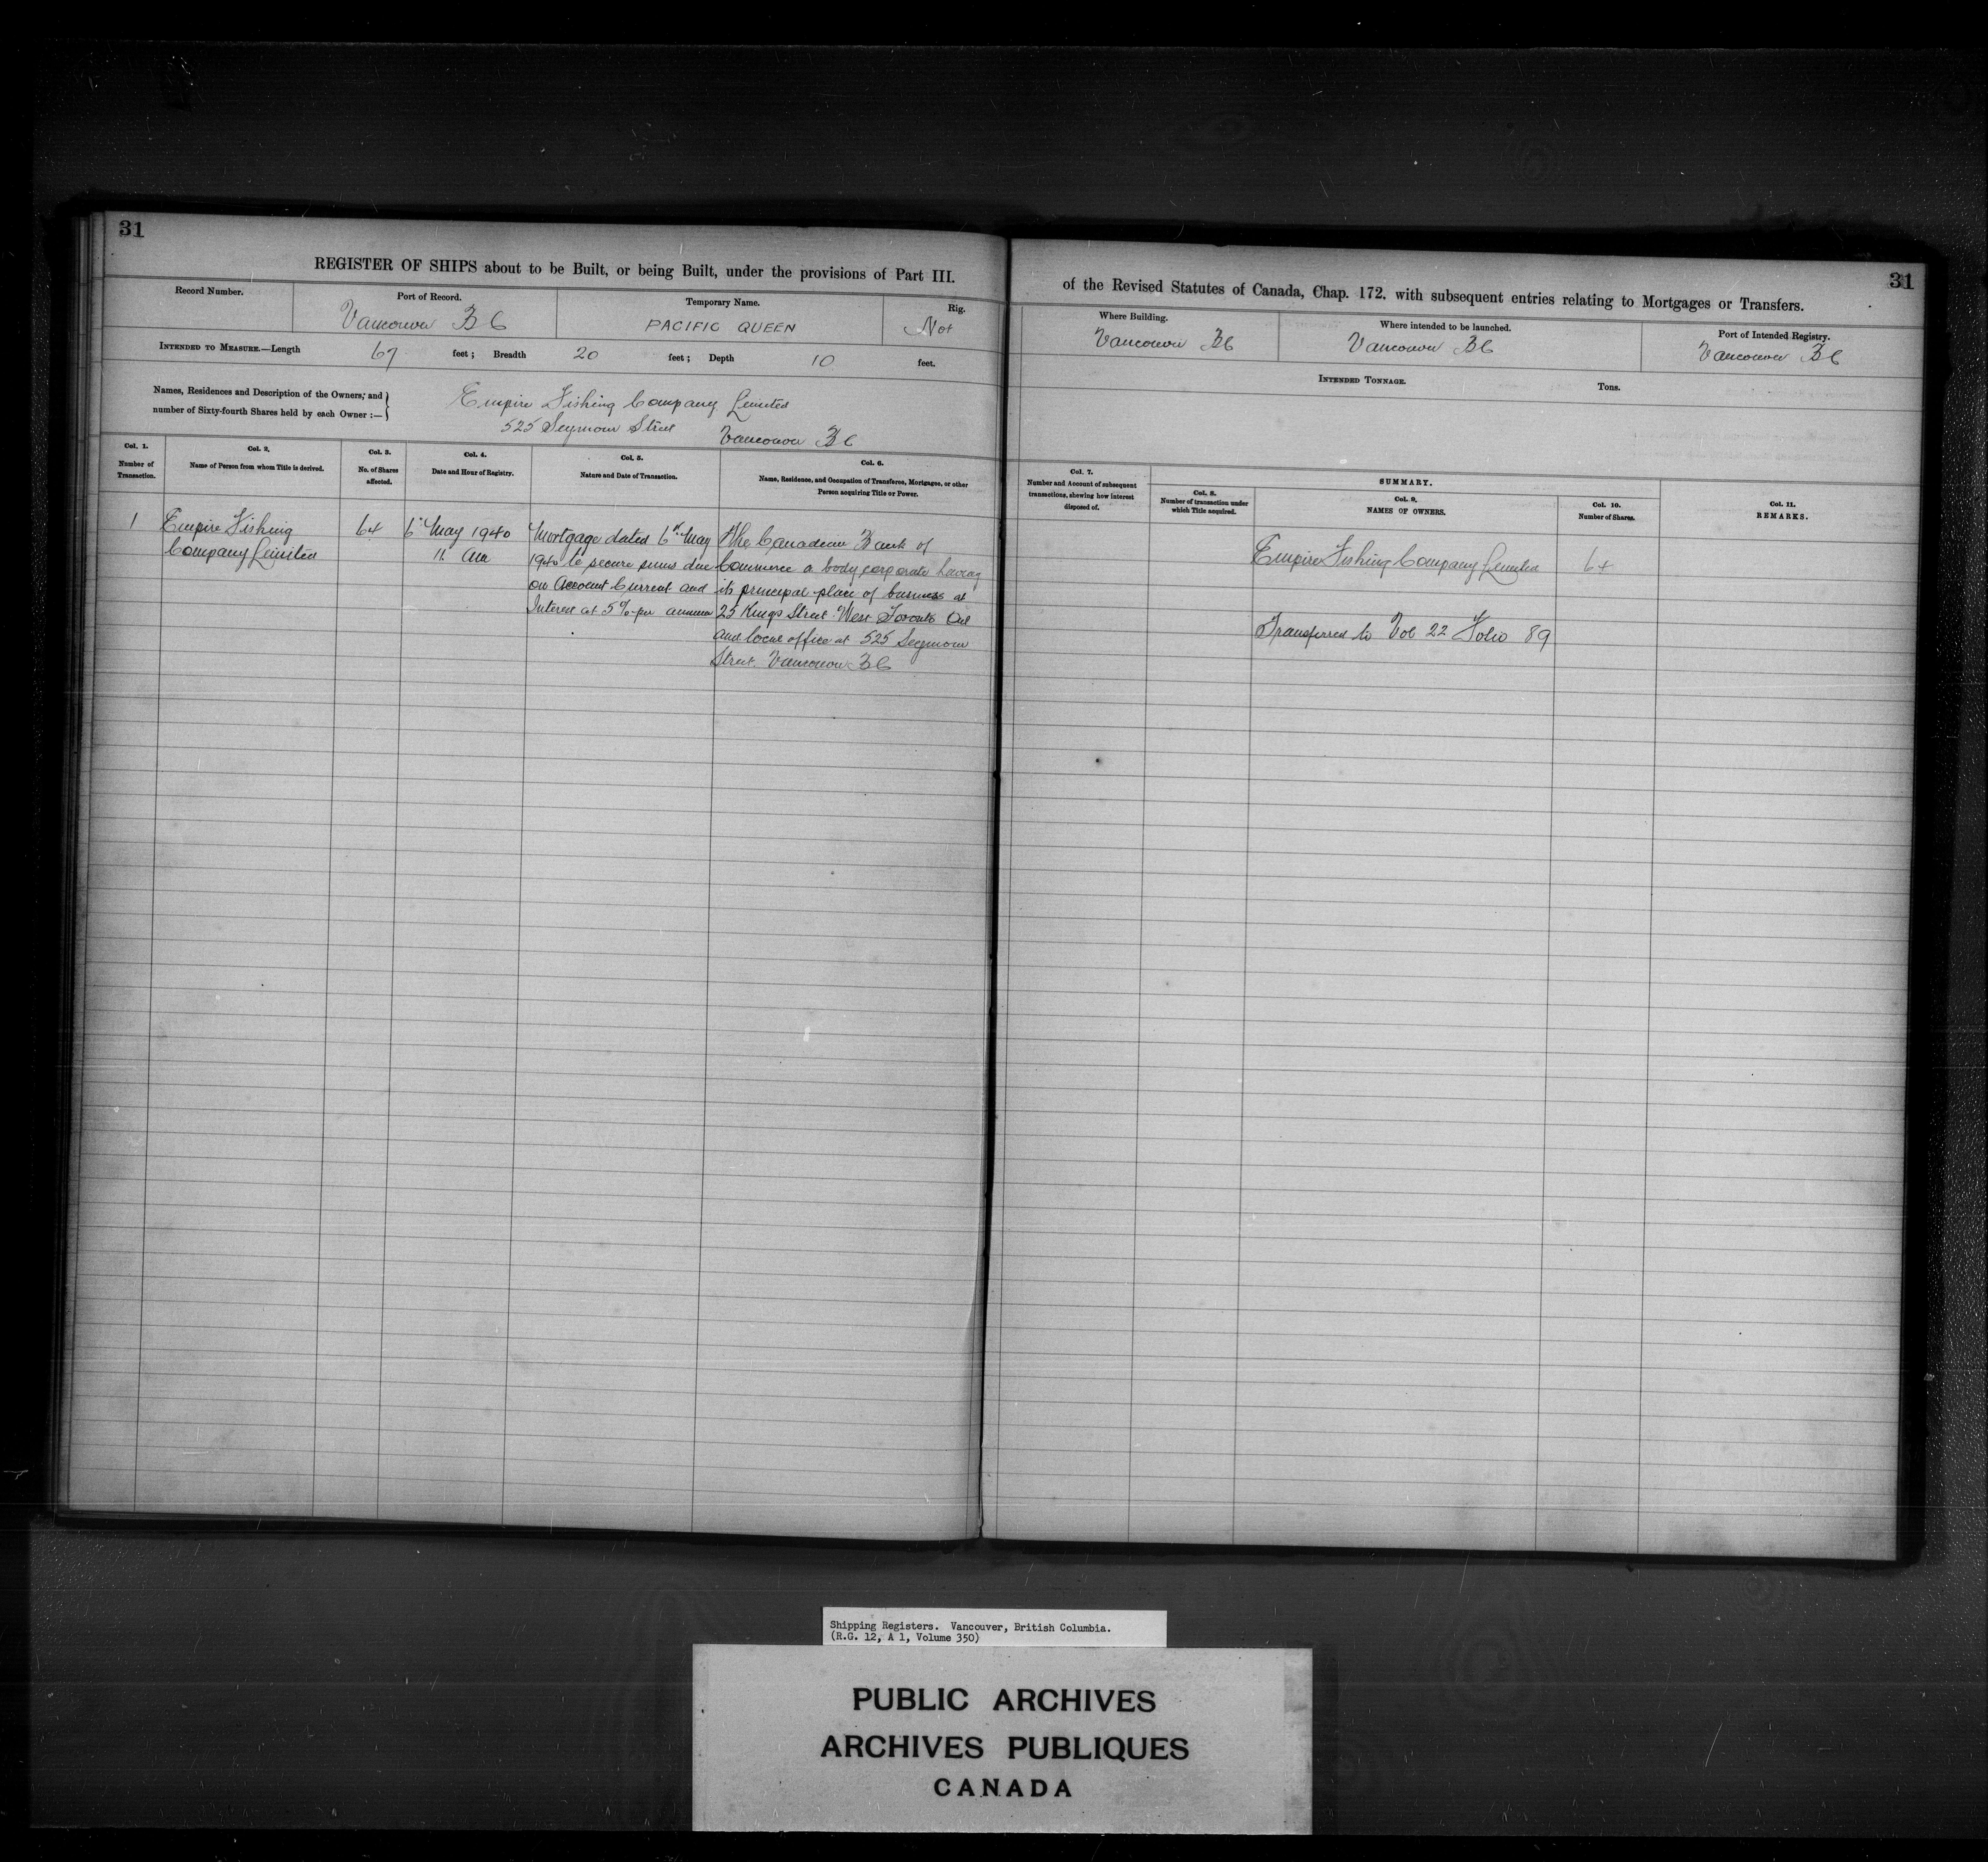 31
REGISTER OF SHIPS about to be Built, or being Built, under the provisions of Part III.
Record Number.
Port of Record.
Vancouver B C
Temporary Name.
PACIFIC QUEEN
Rig.
Not
INTENDED TO MEASURE.—Length 67 feet; Breadth 20 feet; Depth 10 feet.
Names, Residences and Description of the Owners, and
number of Sixty-fourth Shares held by each Owner :—
Empire Fishing Company Limited
525 Seymour Street Vancouver B C
Col. 1.
Number of
Transaction.
Col. 2.
Name of Person from whom Title is derived.
Col. 3.
No. of Shares
affected.
Col. 4.
Date and Hour of Registry.
Col. 5.
Nature and Date of Transaction.
Col. 6.
Name, Residence, and Occupation of Transferee, Mortgagee, or other
Person acquiring Title or Power.
1
Empire Fishing
Company Limited
64
6th May 1940
11 am
Mortgage dated 6th May
1940 to secure sums due
on Account Current and
Interest at 5% per annum
The Canadian Bank of
Commerce a body corporate having
its principal place of business at
25 Kings Street West Toronto Ont
and local office at 525 Seymour
Street Vancouver B C
31
of the Revised Statutes of Canada, Chap. 172. with subsequent entries relating to Mortgages or Transfers.
Where Building.
Vancouver B C
Where intended to be launched.
Vancouver B C
Port of Intended Registry.
Vancouver B C
INTENDED TONNAGE. Tons.
Col. 7.
Number and Account of subsequent
transactions, shewing how interest
disposed of.
SUMMARY.
Col. 8.
Number of transaction under
which Title acquired.
Col. 9.
NAMES OF OWNERS.
Col. 10.
Number of Shares.
Col. 11.
REMARKS.
Empire Fishing Company Limited
64
Transferred to Vol 22 Folio 89
Shipping Registers. Vancouver, British Columbia.
(R.G. 12, A 1, Volume 350)
PUBLIC ARCHIVES
ARCHIVES PUBLIQUES
CANADA